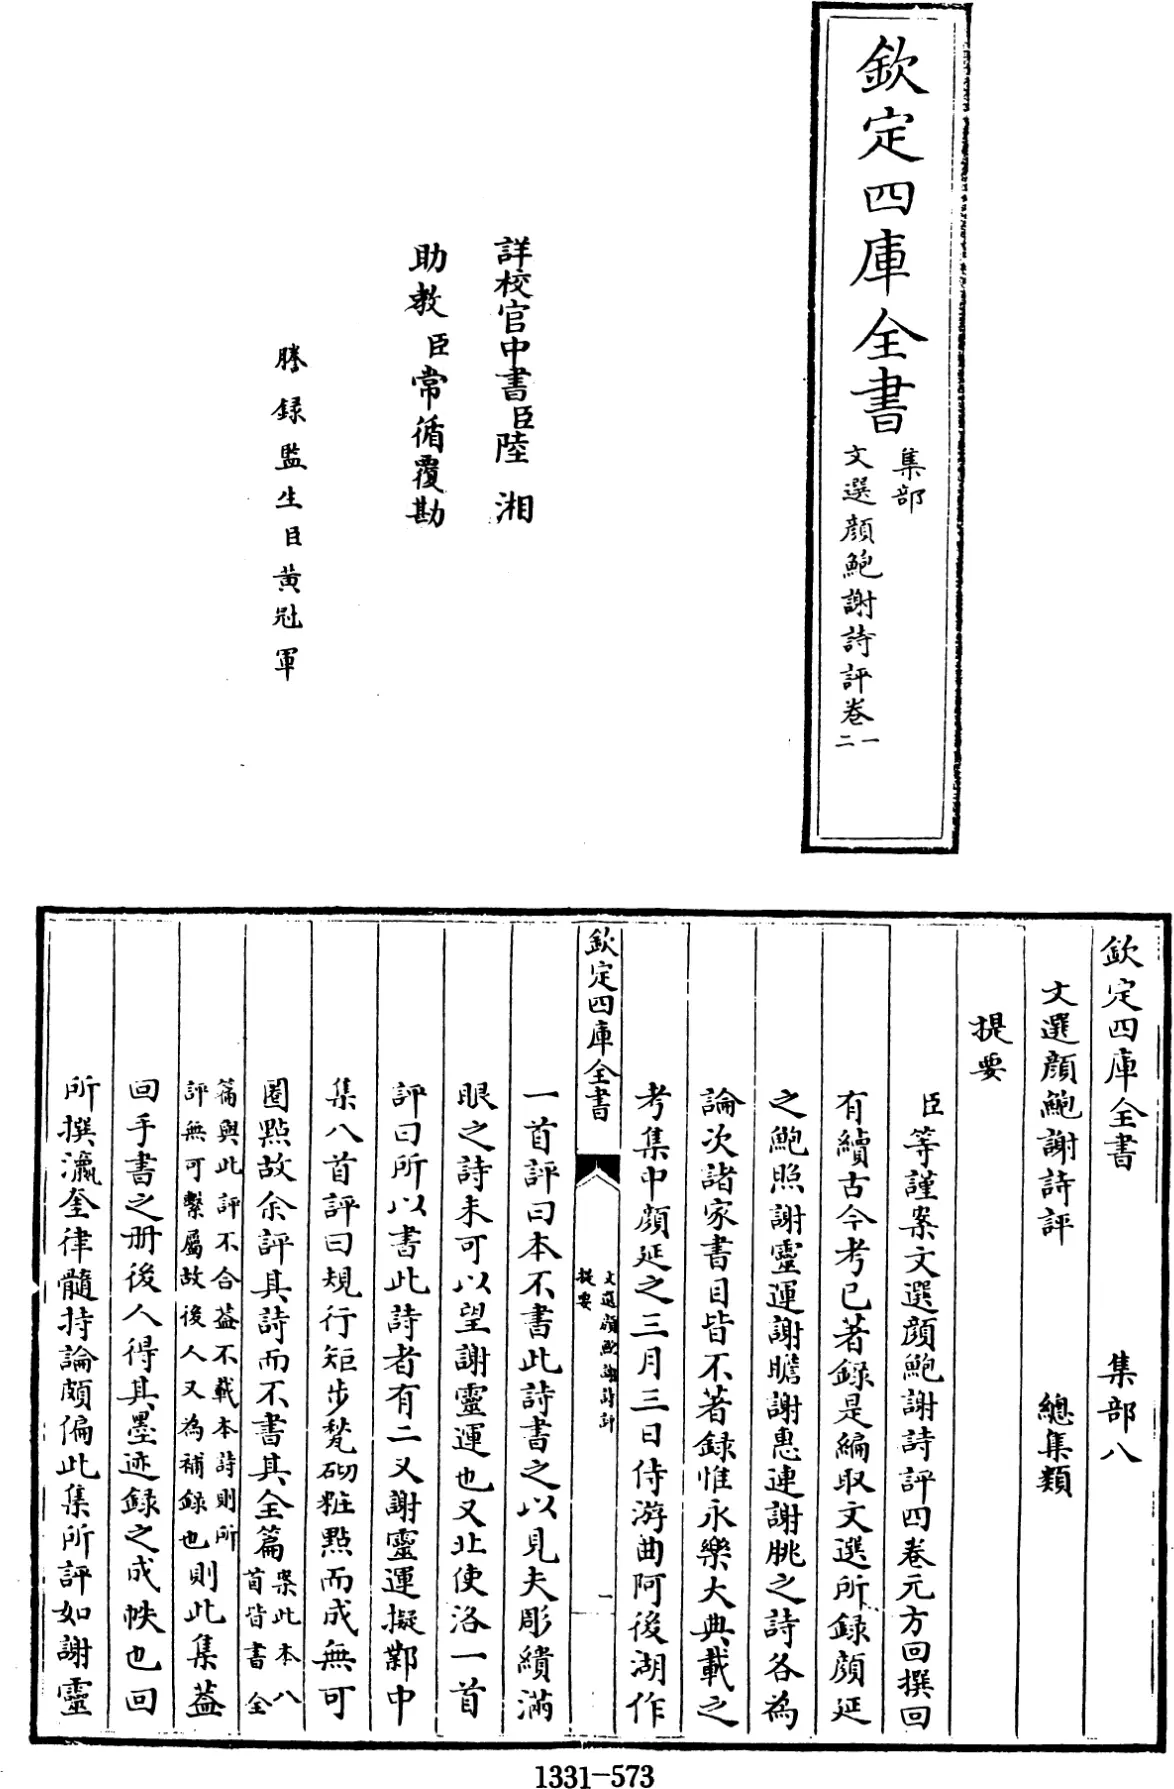 欽定四庫全書
集部
文選顏鮑謝詩評卷一
二
詳校官中書臣陸湘
助教臣常循覆勘
謄録監生臣黄冠軍
欽定四庫全書 集部八
文選顏鮑謝詩評 總集類
提要
臣等謹案文選顏鮑謝詩評四卷元方回撰回
有續古今考已著録是編取文選所録顏延
之鮑照謝靈運謝瞻謝惠連謝朓之詩各為
論次諸家書目皆不著録惟永樂大典載之
考集中顏延之三月三日侍游曲阿後湖作
欽定四庫全書
文選顏鮑謝詩評
提要
一
一首評曰本不書此詩書之以見夫彫繢滿
眼之詩未可以望謝靈運也又北使洛一首
評曰所以書此詩者有二又謝靈運擬鄴中
集八首評曰規行矩步甃砌粧點而成無可
圈點故余評其詩而不書其全篇案此本八
首皆書全
篇與此評不合葢不載本詩則所
評無可繫屬故後人又為補録也則此集葢
回手書之册後人得其墨迹録之成帙也回
所撰瀛奎律髓持論頗偏此集所評如謝靈
1331-573